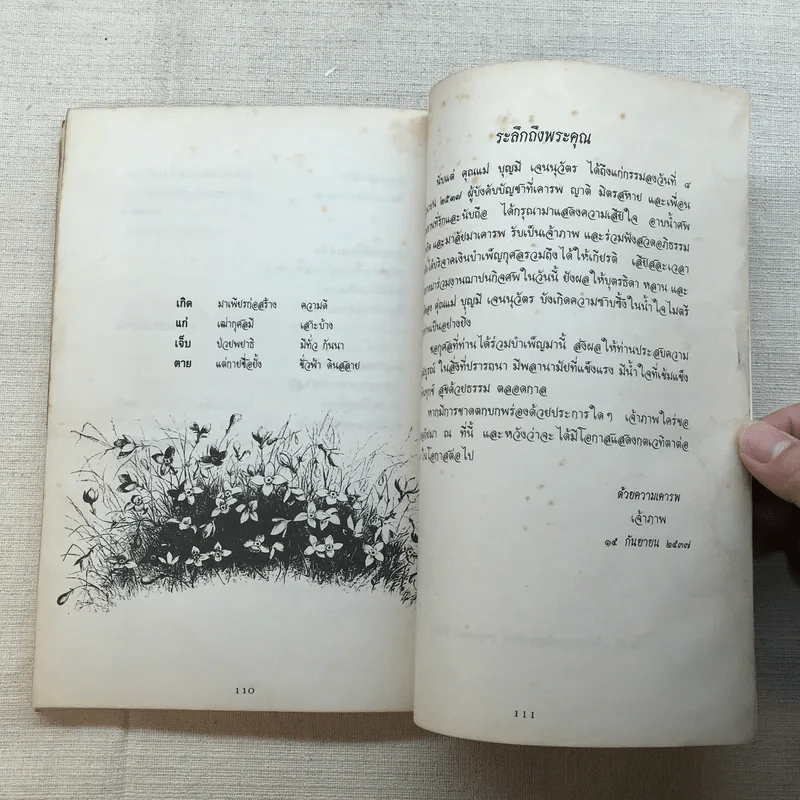 เกิด มาเพียรก่อสร้าง ความดี
แก่ เฒ่ากุศลมี เสาะบ้าง
เจ็บ ป่วยพยาธิ มีทั่ว กันนา
ตาย แต่กายชื่อยั้ง ชั่วฟ้า ดินสลาย
110
ระลึกถึงพระคุณ
นับแต่ คุณแม่ บุญมี เจนนุวัตร ได้ถึงแก่กรรมลงวันที่ ๘
๒๕๓๗ ผู้บังคับบัญชาที่เคารพ ญาติ มิตรสหาย และเพื่อน
ที่รักและนับถือ ได้กรุณามาแสดงความเสียใจ อาบน้ำศพ
และมาลัยมาเคารพ รับเป็นเจ้าภาพ และร่วมฟังสวดอภิธรรม
ได้บริจาคเงินบำเพ็ญกุศลรวมถึงได้ให้เกียรติ เสียสละเวลา
มาร่วมงานฌาปนกิจศพในวันนี้ ยังผลให้บุตรธิดา หลาน และ
คุณแม่ บุญมี เจนนุวัตร บังเกิดความซาบซึ้งในน้ำใจไมตรี
เป็นอย่างยิ่ง
ขอกุศลที่ท่านได้ร่วมบำเพ็ญมานี้ ส่งผลให้ท่านประสบความ
ในสิ่งที่ปรารถนา มีพลานามัยที่แข็งแรง มีน้ำใจที่เข้มแข็ง
สุขด้วยธรรม ตลอดกาล
หากมีการขาดตกบกพร่องด้วยประการใดๆ เจ้าภาพใคร่ขอ
ณ ที่นี้ และหวังว่าจะได้มีโอกาสแสดงกตเวทิตาต่อ
ในโอกาสต่อไป
ด้วยความเคารพ
เจ้าภาพ
๑๕ กันยายน ๒๕๓๗
111